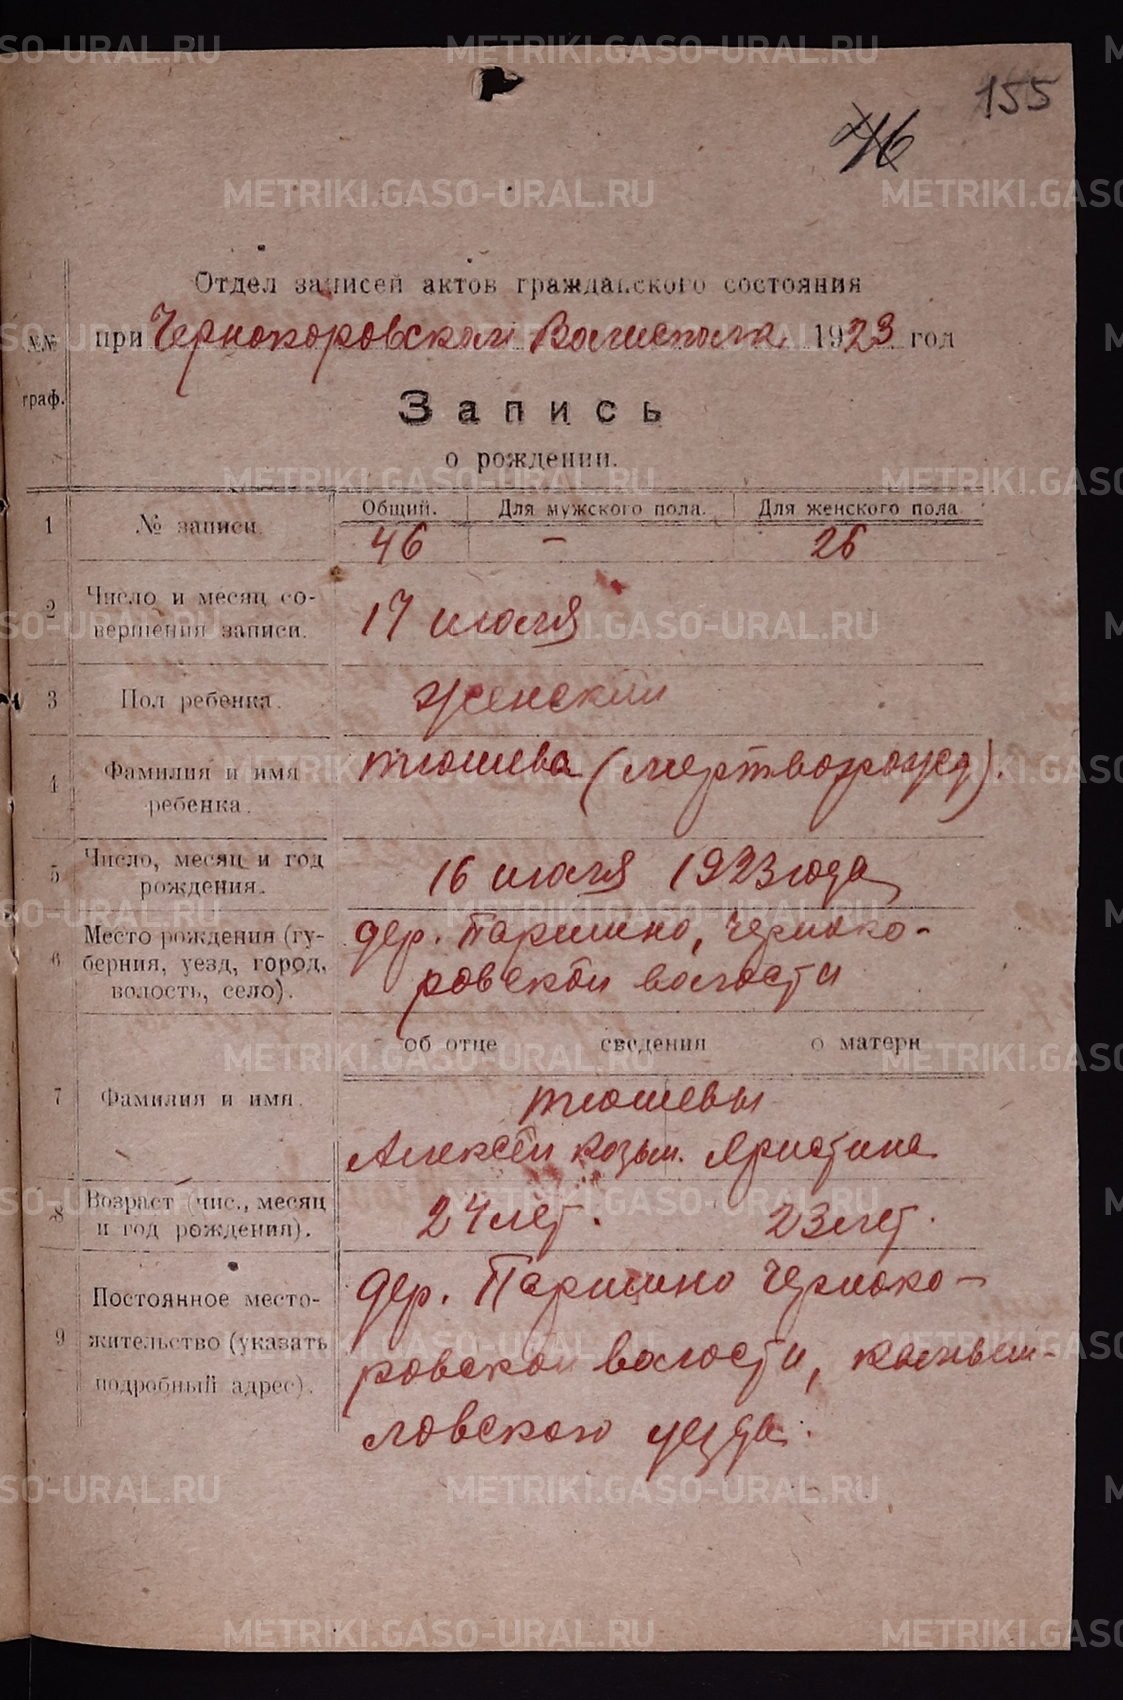 155
46
Отдел записей актов гражданского состояния
при Чернокоровском Волисполк. 1923 год
№№ граф.
Запись
о рождении.
1 № записи. Общий. Для мужского пола. Для женского пола
46 — 26
2 Число и месяц совершения записи. 17 июля
3 Пол ребенка. женский
4 Фамилия и имя ребенка. Тюшева (мертворожд).
5 Число, месяц и год рождения. 16 июля 1923 года
6 Место рождения (губерния, уезд, город, волость, село). дер. Паршино, Черноко-
ровской волости
об отце сведения о матери
7 Фамилия и имя. Тюшевы
Алексей Козьм.
8 Возраст (чис., месяц и год рождения). 24 лет. 23 лет.
9 Постоянное место-
жительство (указать
подробный адрес). дер. Паршино Черноко-
ровской волости, Камыш-
ловского уезда.
METRIKI.GASO-URAL.RU